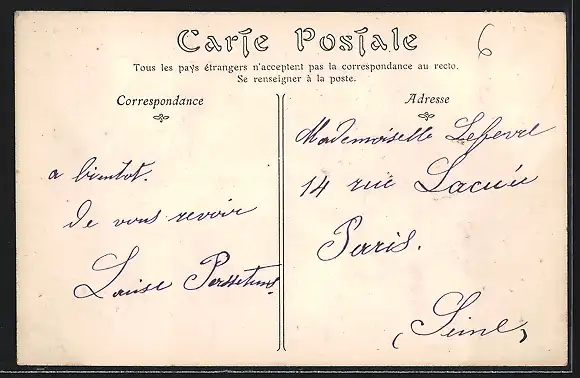 Carte Postale
Tous les pays étrangers n'acceptent pas la correspondance au recto.
Se renseigner à la poste.
6
Correspondance
Adresse
a bientot.
de vous revoir
Louise
Mademoiselle Lefevre
14 rue Lacuée
Paris.
(Seine)